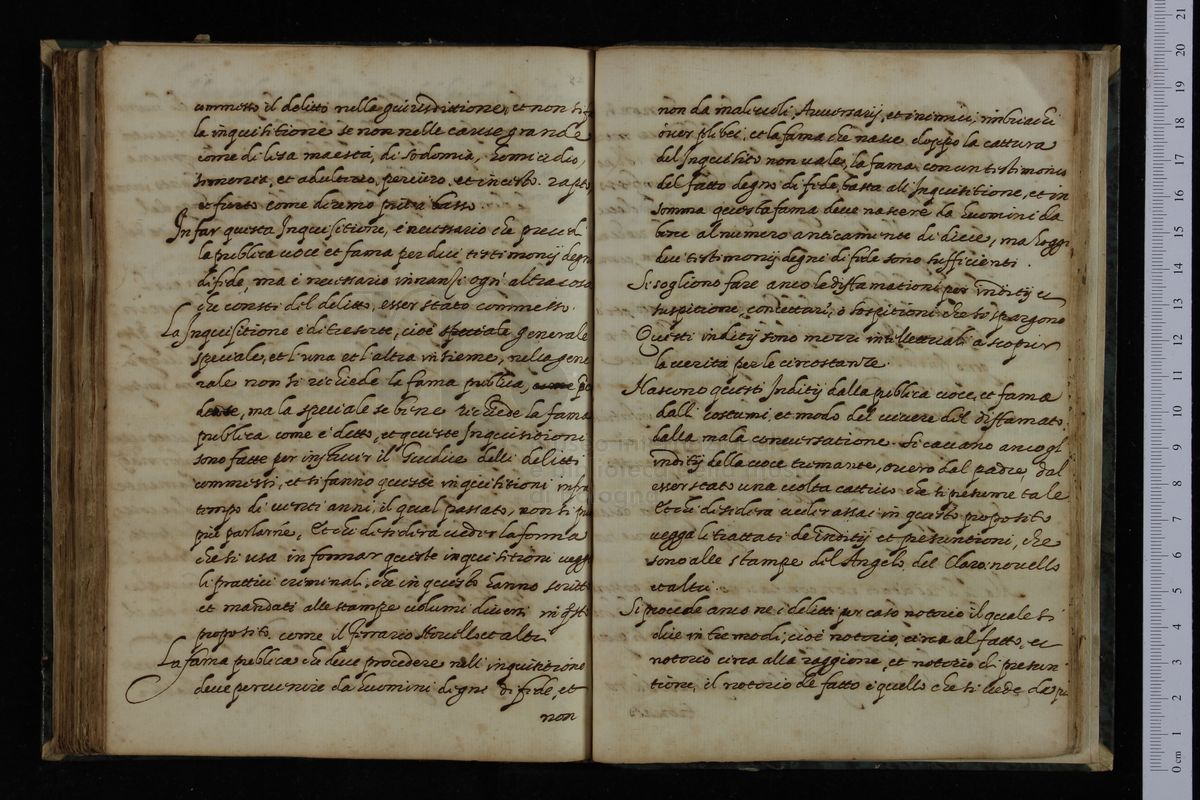 commesso il delitto nella giurisdittione, et non si fa
la inquisitione se non nelle cause grande
come di lesa maestà, di sodomia, homicidio,
simonia, et adulterio, periuro, et incesto. rapto
et furto come diremo più a basso.
In far questa Inquisitione, è necessario che preceda
la publica uoce et fama per dui testimonij degni
di fide, ma è necessario innanzi ogn' altra cosa
che consti del delitto, esser stato commesso.
La Inquisitione è di tre sorte, cioè speciale generale
speciale, et l'una et l'altra insieme, nella gene
rale non si richiede la fama publica,
ma la speciale se bene richiede la fama
publica come è detto, et queste Inquisitioni
sono fatte per instruir il Giudice delli delitti
commessi, et si fanno queste inquisitioni infra
tempo di uenti anni, il qual passato, non si può
più parlarne, Et chi desidera ueder la forma
che si usa in formar queste inquisitioni uegga
li prattici criminali, che in questo hanno scritto
et mandati alle stampe uolumi diuersi in qsto
proposito come il Ferrario Nouello, et altri
La fama publica che deue procedere nell' inquisitione
deue peruenire da huomini degni di fide, et
non
non da maliuoli, Auuersarij, et inimici, imbriachi
ouer plebei, et la fama che nasce doppo la cattura
del Inquisito non uale, la fama con un testimonio
del fatto degno di fide, basta all' Inquisitione, et in
somma questa fama deue nascere da huomini da
bene al numero anticamente di diece, ma hoggi
dui testimonij degni di fide sono sufficienti.
Si sogliono fare anco le diffamationi per inditij et
suspitione, conietturi, o sospitioni che si spargono
Questi inditij sono mezzi intellettuali a scoprir
la uerità per le circostanze.
Nascono questi Inditij dalla publica uoce, et fama
dalli costumi, et modo del uiuere del diffamato,
dalla mala conuersatione. Si cauano anco gl'
inditij della uoce tremante, ouero dal padre, dal
esser stato una uolta cattiuo che si presume tale
Et chi desidera ueder assai in questo proposito
uegga li trattati de inditij et presuntioni, che
sono alle stampe del Angelo, del Claro: nouello
et altri.
Si procede anco ne i delitti per caso notorio il quale si
dice in tre modi, cioè notorio, circa al fatto, et
notorio circa alla raggione, et notorio di presun
tione, il notorio de fatto è quello che si uede da